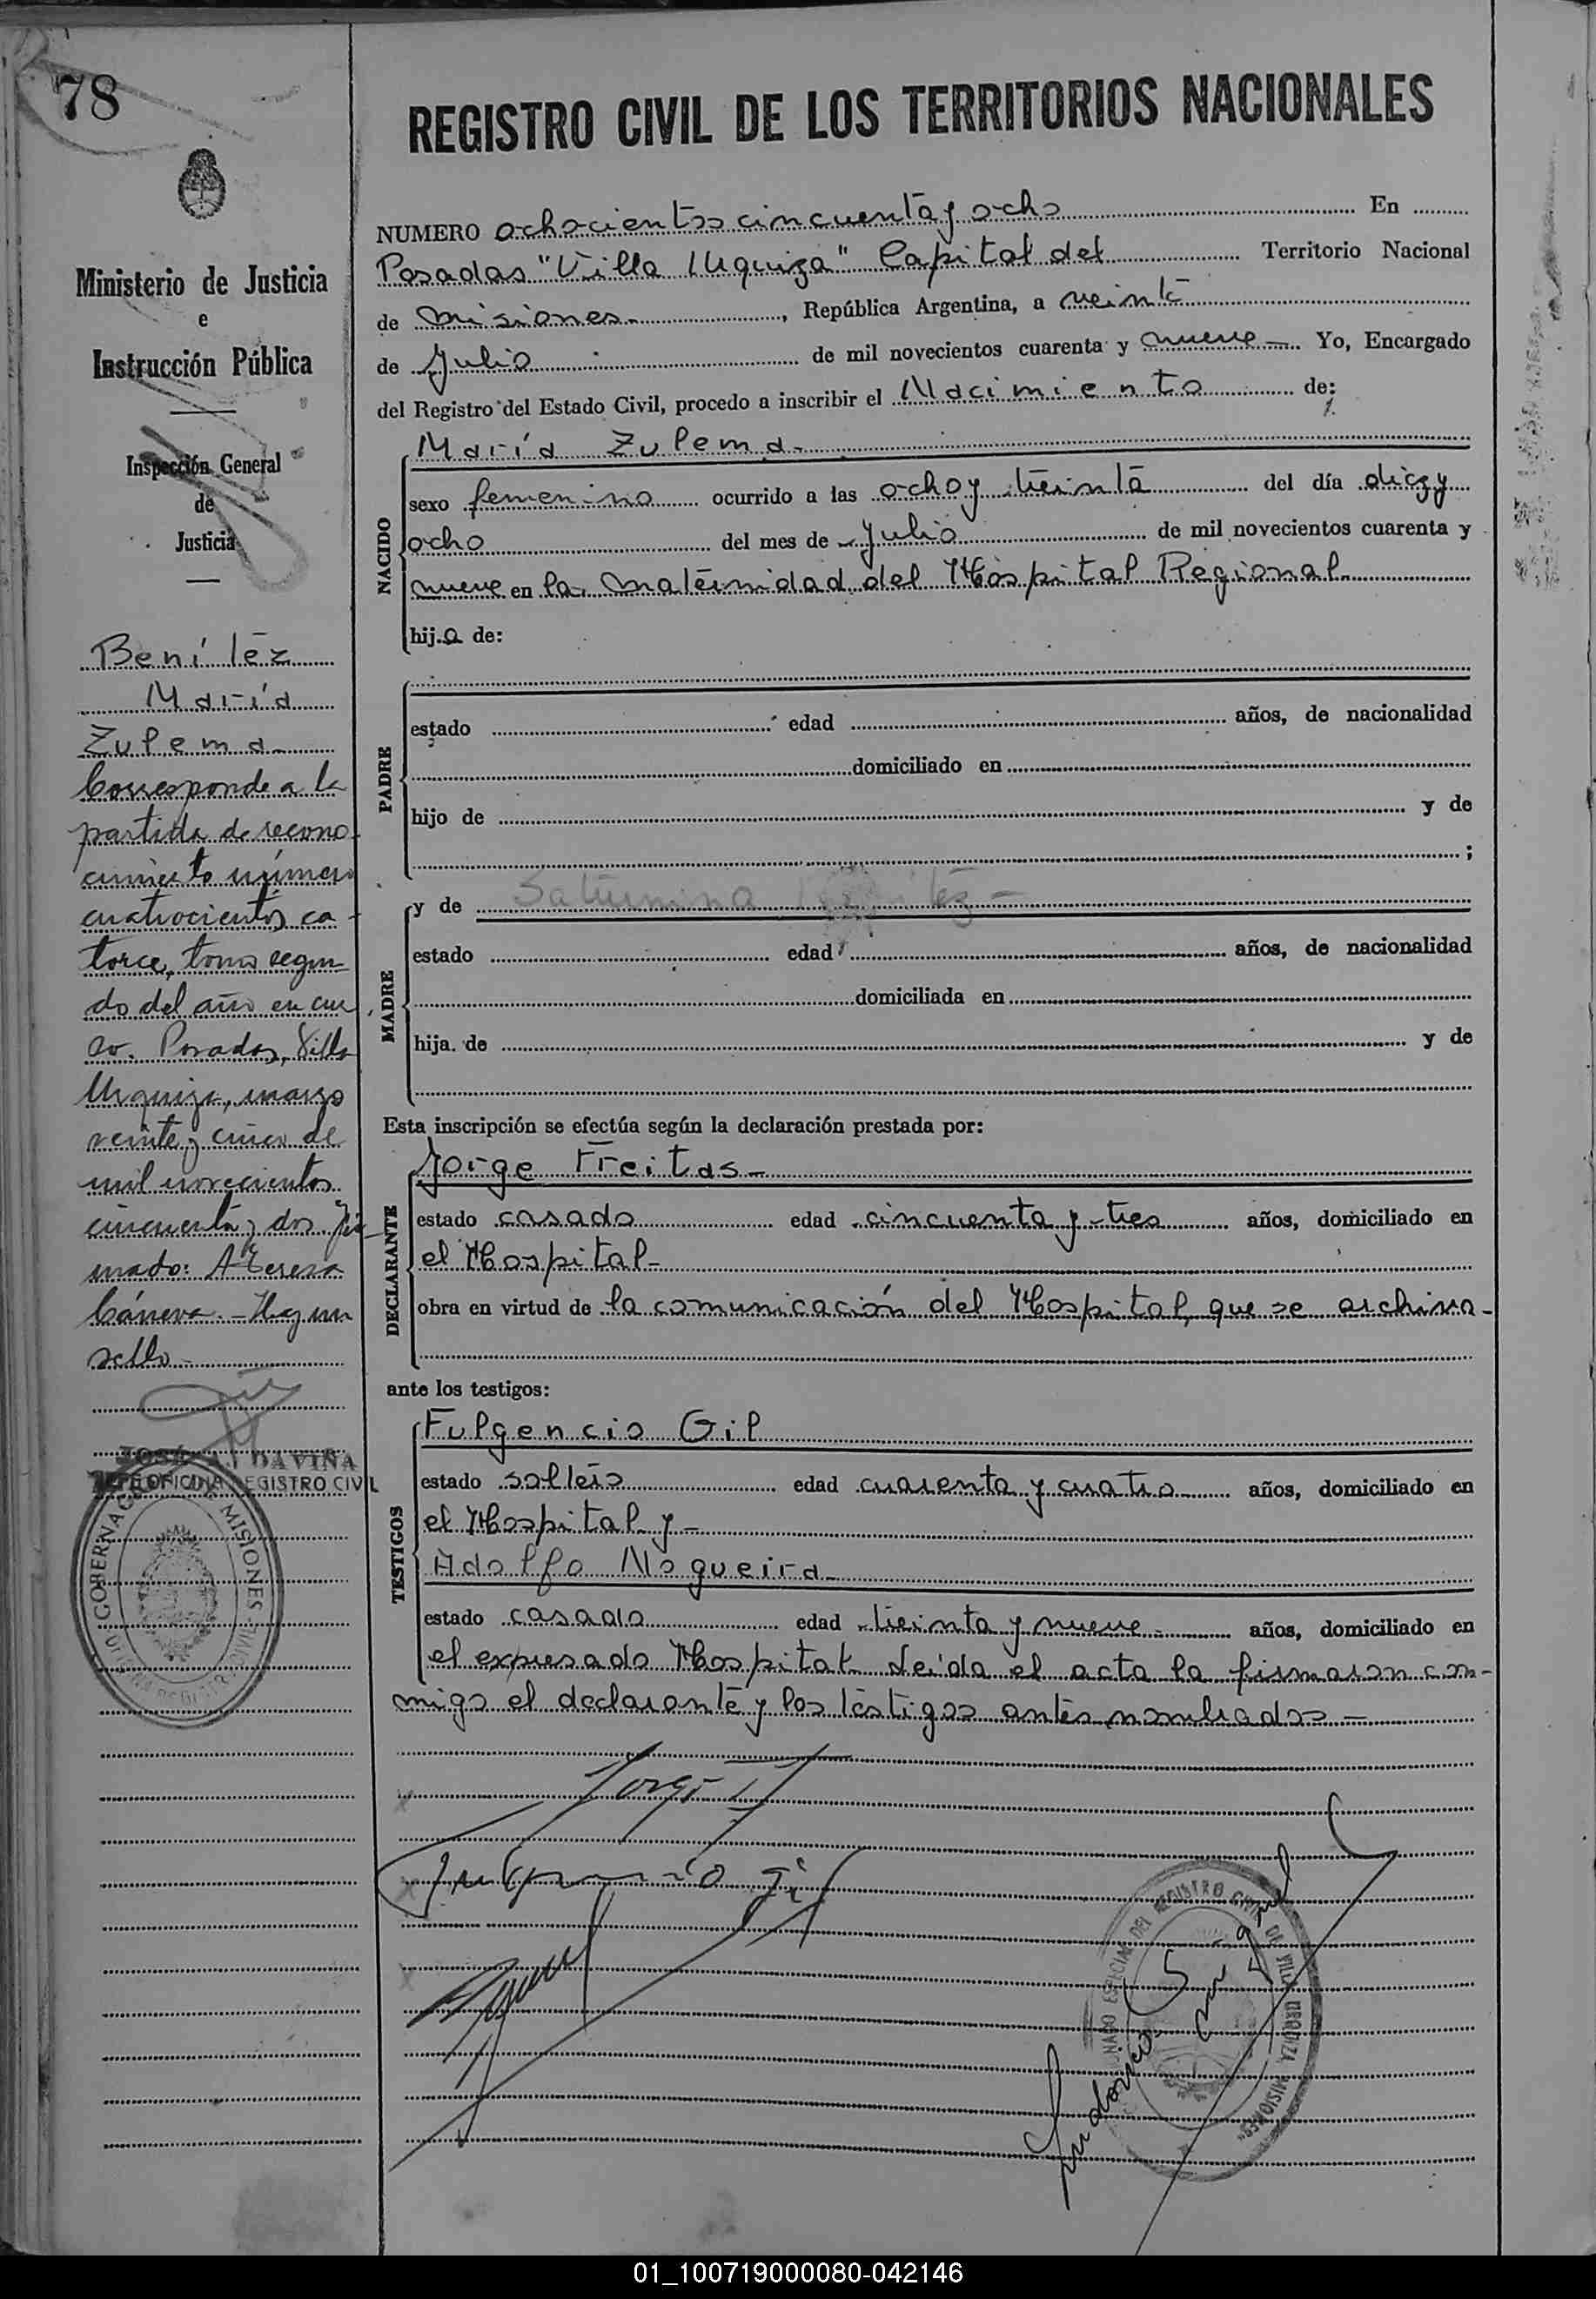 78
REGISTRO CIVIL DE LOS TERRITORIOS NACIONALES
Ministerio de Justicia
e
Instrucción Pública
Inspección General
de
Justicia
Benítez
María
Zulema
Corresponde a la
partida de recono-
cimiento número
cuatrocientos ca-
torce, tomo segun-
do del año en cur-
so. Posadas, Villa
Urquiza, marzo
veinte y cinco de
mil novecientos
cincuenta y dos. Fir-
mado: A Teresa
Cáneva.- Hay un
sello-
JOSÉ A. DAVIÑA
JEFE OFICINA REGISTRO CIVIL
GOBERNACIÓN DE MISIONES
NUMERO ochocientos cincuenta y ocho En
Posadas "Villa Urquiza" Capital del Territorio Nacional
de Misiones, República Argentina, a veinte
de Julio de mil novecientos cuarenta y nueve - Yo, Encargado
del Registro del Estado Civil, procedo a inscribir el Nacimiento de:
María Zulema-
NACIDO
sexo femenino ocurrido a las ocho y treinta del día diez y
ocho del mes de Julio de mil novecientos cuarenta y
nueve en la Maternidad del Hospital Regional
hija de:
PADRE
estado edad años, de nacionalidad
domiciliado en
hijo de y de
;
MADRE
y de Saturnina Benítez -
estado edad años, de nacionalidad
domiciliada en
hija de y de
Esta inscripción se efectúa según la declaración prestada por:
DECLARANTE
Jorge Freitas-
estado casado edad cincuenta y tres años, domiciliado en
el Hospital-
obra en virtud de la comunicación del Hospital, que se archiva-
ante los testigos:
TESTIGOS
Fulgencio Gil
estado soltero edad cuarenta y cuatro años, domiciliado en
el Hospital y -
Adolfo Nogueira
estado casado edad treinta y nueve años, domiciliado en
el expresado Hospital. Leída el acta la firmaron con-
migo el declarante y los testigos antes nombrados -
Jorge F
Fulgencio Gil
REGISTRO CIVIL DE VILLA URQUIZA MISIONES
01_100719000080-042146